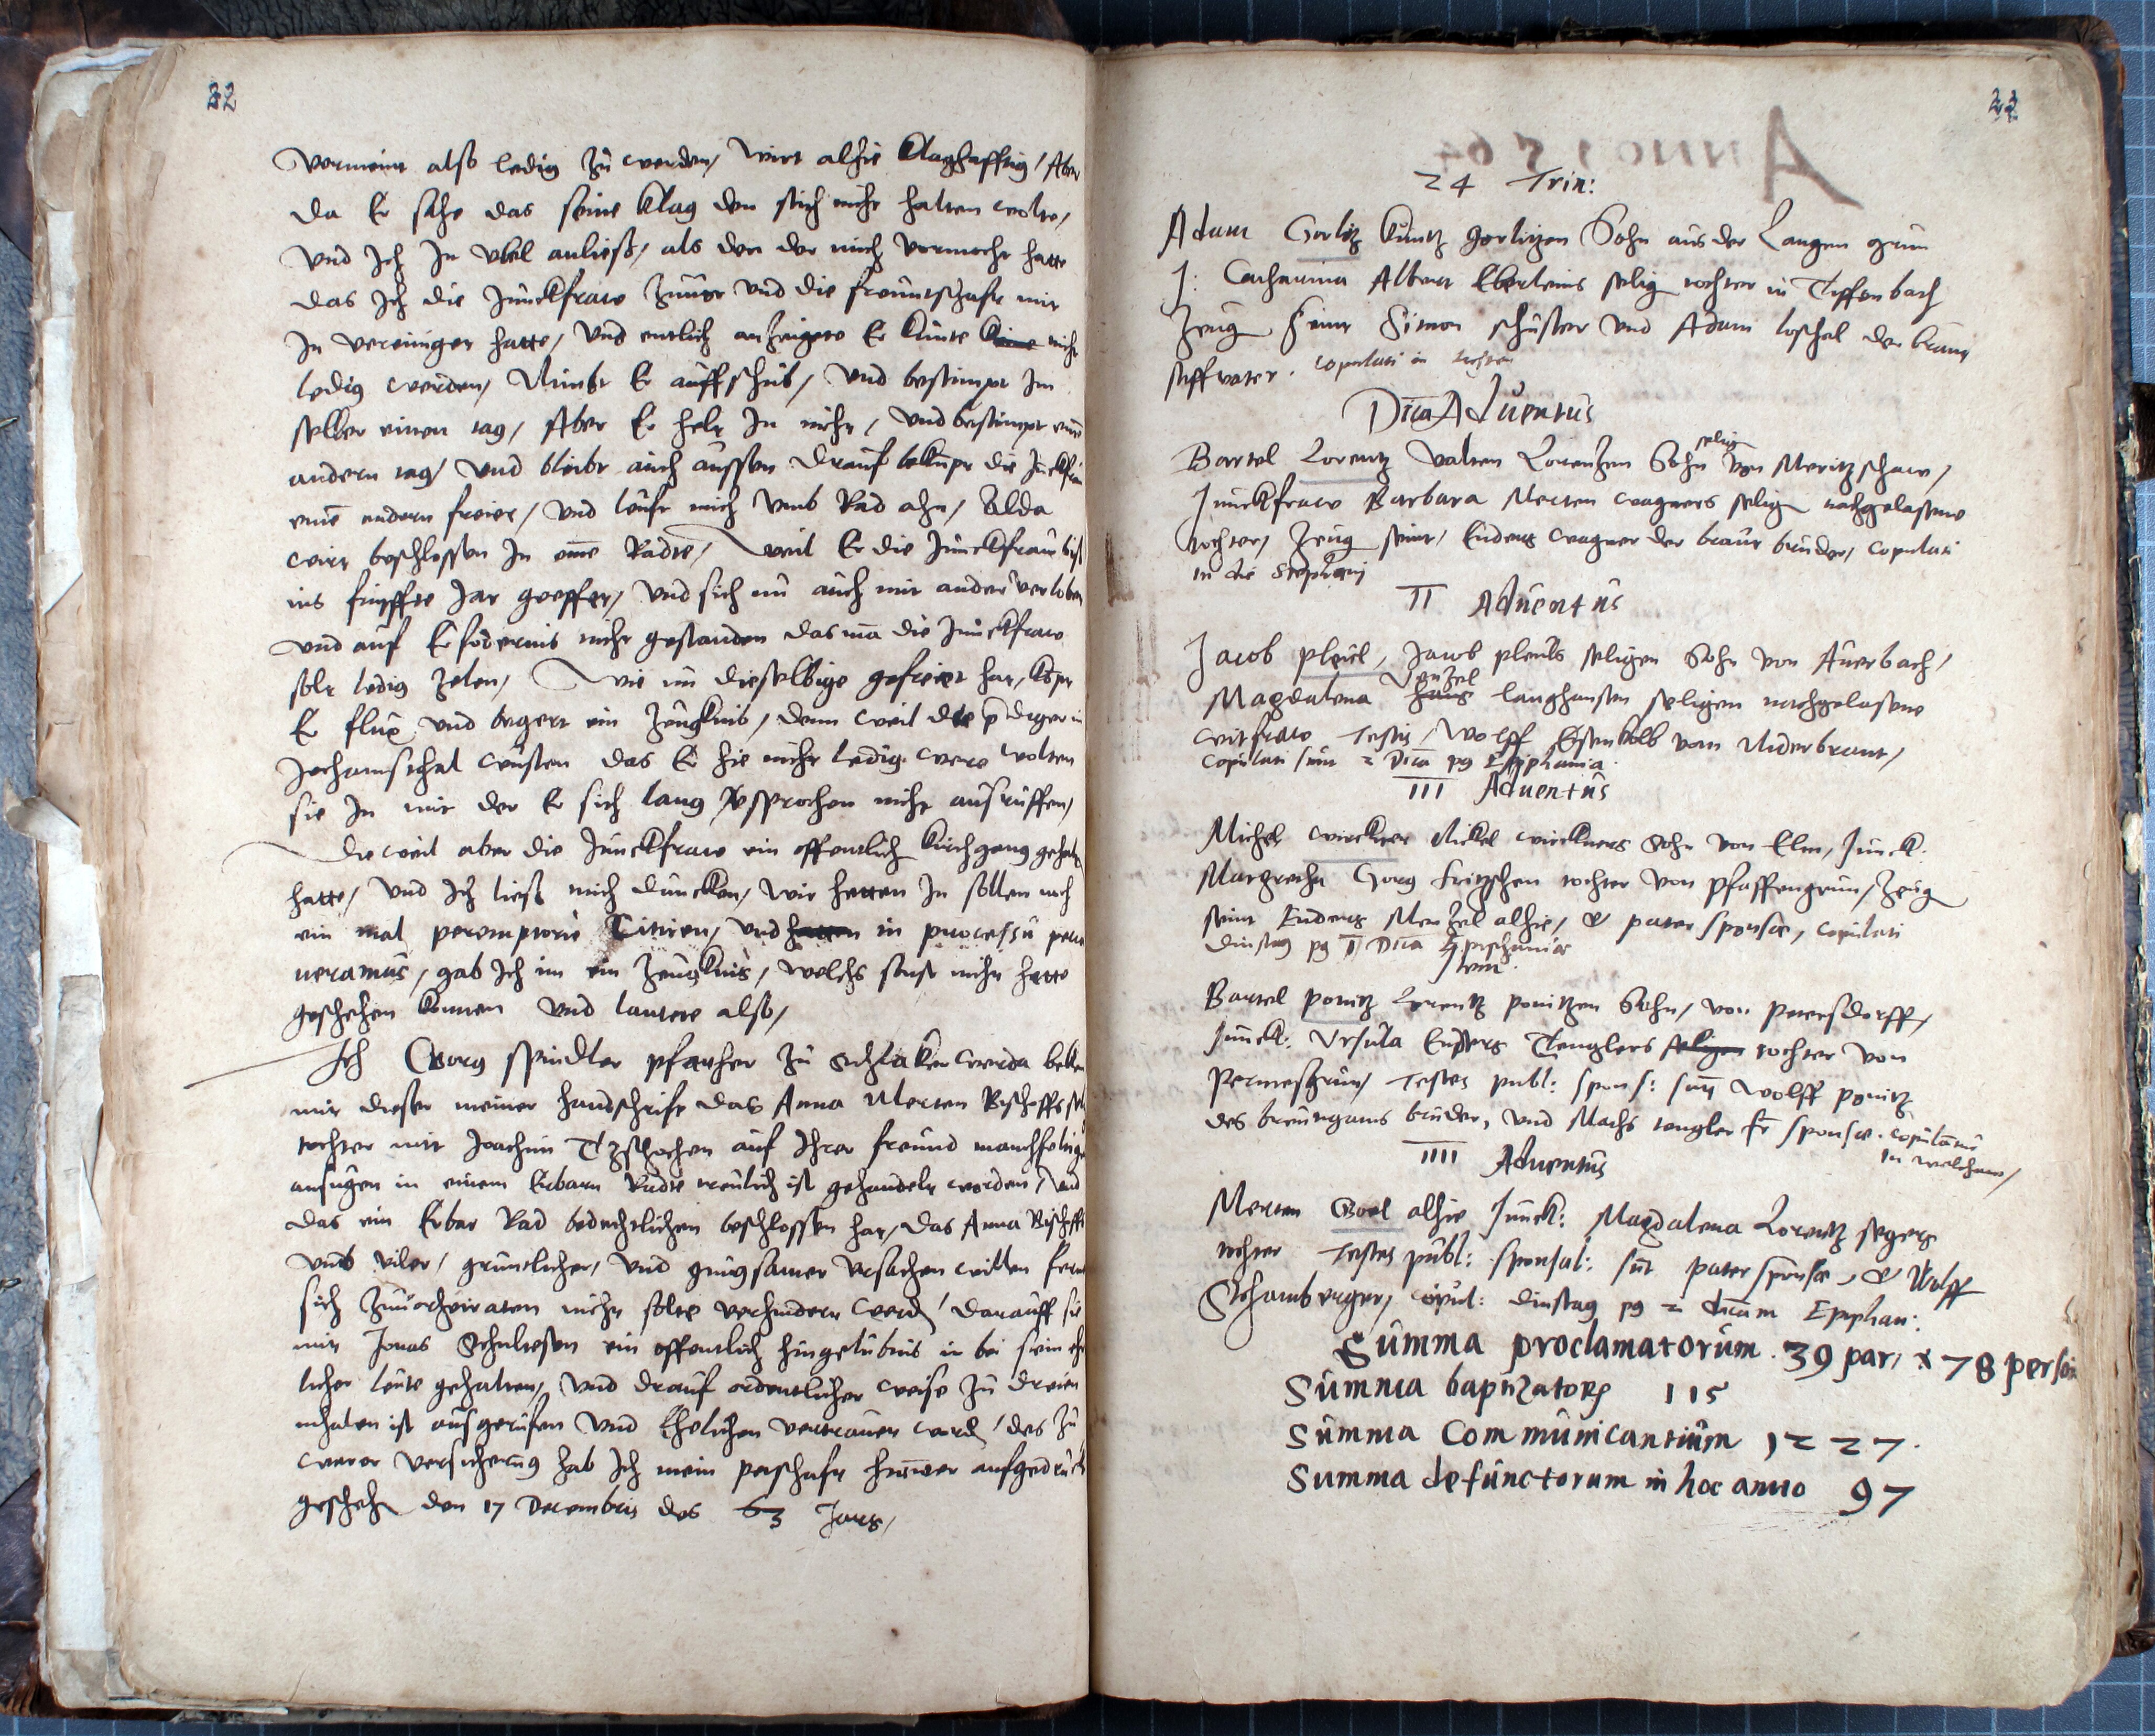 32
vermeint also ledig zu werden, wirt alhie klaghafftig, Aber
da Er sahe das seine klag den stich nicht halten wolte,
und ich in vbel anließ, als den der mich vermocht hatte
das ich die Junckfraw zuuor und die freuntschafft mit
In vereiniget hatte, und entlich anzeigete Er kunte nicht
ledig werden, Nimbt Er auffschub, und bestimpt Im
selber einen tag, Aber Er helt In nicht, und bestimpt einē
andern tag, und bleibt auch aussen. Drauf bekūpt die
einē andern freier, und leufft mich vmb Rad ahn, Alda
wirt beschlossen In eīne Radte, weil Er die Junckfraw bis
ins funffte Jar geeffet, und sich nu auch mit ander verloben
und auf Erfodernis nicht gestanden das mā die Junckfraw
solt ledig zelen, Wie nu dieselbige gefreiet hat, kōpt
Er flux und begert ein Zeugknis, denn weil die p̄diger in
Jochamsthal wusten das Er hie nicht ledig were wolten
sie In mit der Er sich lang v̄sprochen nicht ausruffen,
die weil aber die Junckfraw ein offentlich kirchgang gehabt
hatte, und Ich ließ mich duncken, wir hetten In sollen noch
ein mal peremptorie Citiren, und in processu pecca
ueramus, gab Ich im ein Zeugknis, welchs sonst nicht hette
geschehen konnen und lautete also,
Ich Georg spindler pfarher zu Schlakenwerda beken
mit dieser meiner handschrifft das Anna Merten Bischoffs
tochter mit Joachim auf Ihrer freund manchfeltig
ansugen in einem Erbarn Radte treulich ist gehandelt worden, und
das ein Erbar Rad bedechtlichen beschlossen hat, das Anna Bischoffs
vmb viler, gruntlicher, und gnugsamer vrsachen willen
sich zuuorheiraten nicht solte verhindert werd, darauff sie
mit Jonas ein offentlich hingelubnis in bei sein
licher leute gehalten, und drauf ordentlicher weise zu dreien
mhalen ist ausgerufen und Ehelichen vertrauet word, des zu
warer versicherūg hab Ich mein petschafft hirunter aufgedruckt
geschehē den 17 Decembris des 63 Jars,
24 Trin:
Adam Gorlitz kuntz gorlitzen Sohn aus der Langen grun
J: Catharina Albert Eberleins selig tochter in Tiffenbach
Zeug seint Simon schuster und Adam loschel der braut
stiffvater. copulati in
Dn̄ica Aduentus
Bartel Lorentz valten Lorentzen Sohn selig von Meritzschaw,
Junckfraw Barbara Merten wagners selig nachgelassene
tochter, Zeug seint, Enderes wagner der braut bruder, copulati
in die Stephani
II Aduentus
Jacob pleiel, Jacob pleiels seligen Sohn von Auerbach,
Magdalena Wenzel langhansen seligen nachgelassene
witfraw Testis, Wolff Esenkolb vom Niderbrant,
copulati sunt 2 Dn̄ica p9 Epiphania.
III Aduentus
Michel wirckner Nickel wirckners Sohn von Elm, Junck.
Margretha Georg fritzschen tochter von pfaffengrun, Zeug
seint Enders Menzel alhie, & pater sponsae, copulati
Dinstag p9 II Dn̄ica Epiphaniae
Item.
Bartel ponitz Lorentz ponitzen Sohn, von petersdorff,
Junck: Vrsula Enders Tenglers seligen tochter von
Permesgrun, Testes publ: spons: sūt Wolff ponitz
des breutgams bruder, und Mathes tengler fr̄ sponsae. copulati
in welchaw,
IIII Aduentus
Merten Goel alhie Junck: Magdalena Lorentz segers
tochter Testes publ: sponsal: sūt pater sponsae, & Wolff
Schamberger, copul: dinstag p9 2 dn̄icam Epiphan:
Summa proclamatorum. 39 par, x 78 person
Summa baptizatorū 115
Summa Communicantium 1227.
Summa defunctorum in hoc anno 97